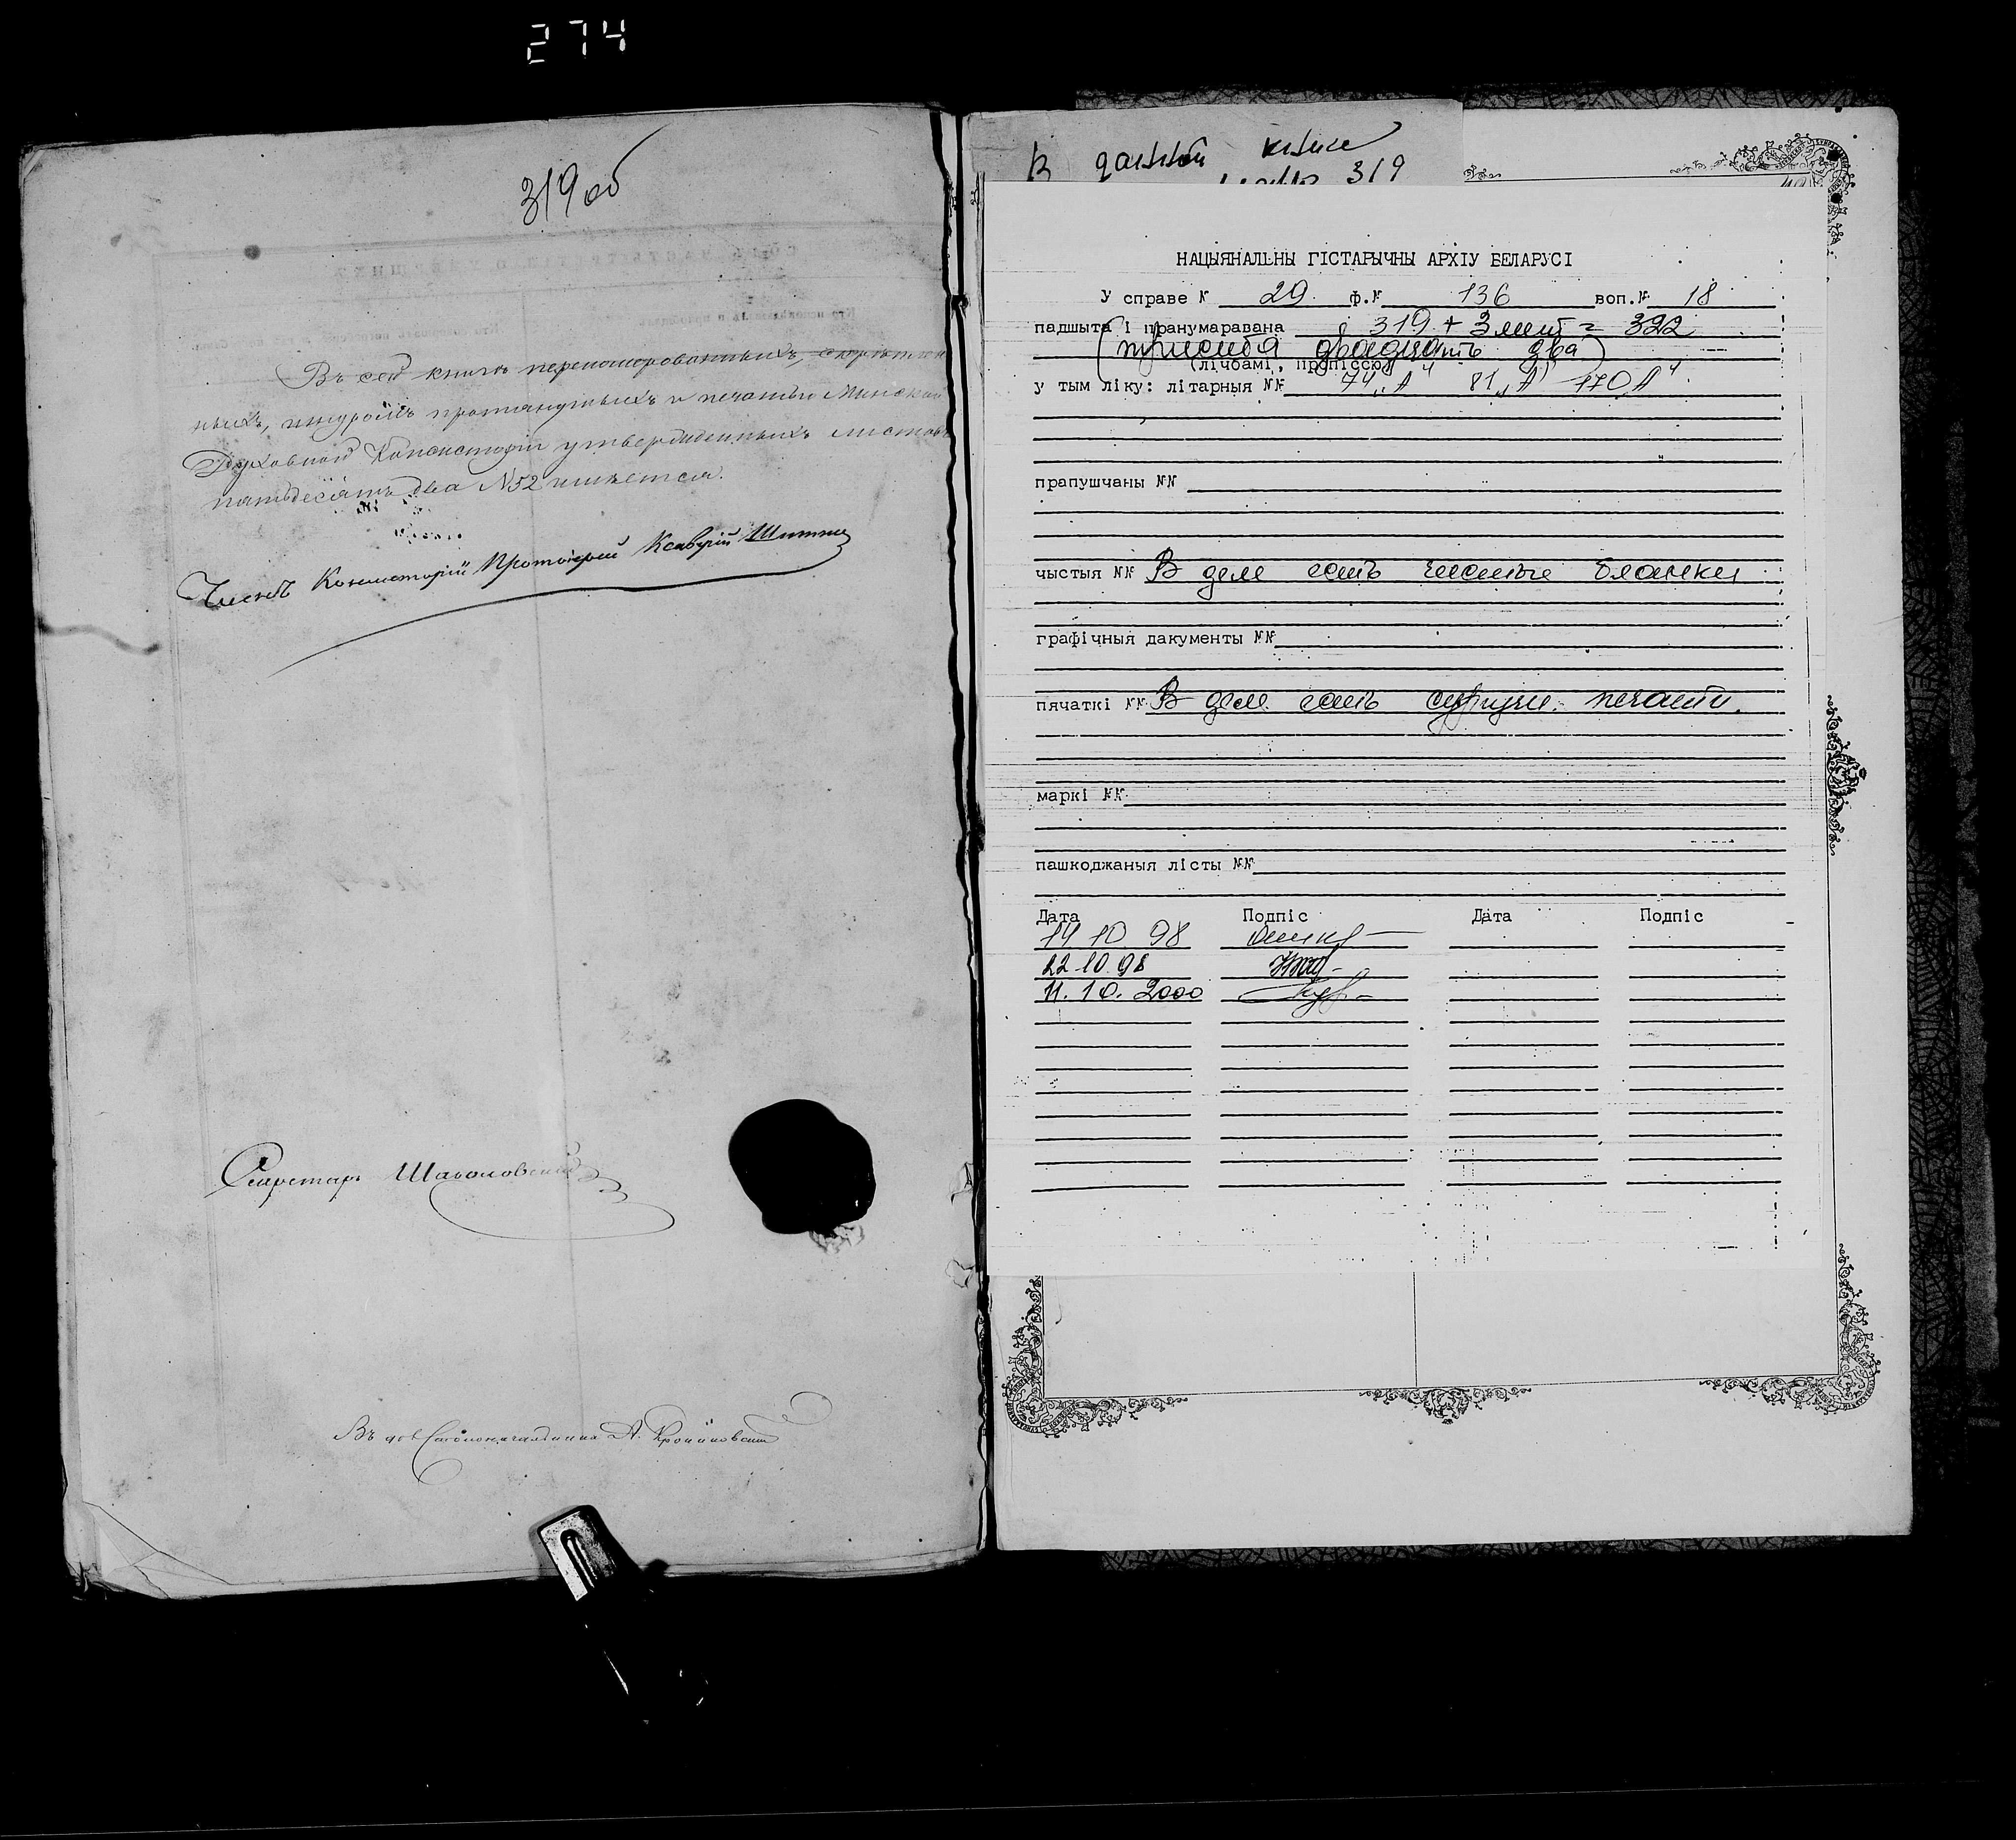 274
319 об
Въ сей книгѣ перенумерованныхъ, скрѣплен
ныхъ, шнуромъ протянутыхъ и печатью Минской
Духовной Консисторіи утвержденныхъ листовъ
пятьдесятъ два N 52 имѣется.
Членъ Консисторіи Протоіерей
Секретарь
Въ Столоначальника А.
В данной книге
319
НАЦЫЯНАЛЬНЫ ГІСТАРЫЧНЫ АРХІУ БЕЛАРУСІ
У справе № 29 ф.№ 136 воп.№ 18
падшыта і пранумаравана 319 + 3 лит = 322
(триста двадцать два)
(лічбамі, пропіссю)
у тым ліку: літарныя №№ 74 „А" 81 „А" 170 А"
прапушчаны №№
чыстыя №№ В деле есть чистые бланки
графічныя дакументы №№
пячаткі №№ В деле есть сургучн. печати.
маркі №№
пашкоджаныя лісты №№
Дата Подпіс Дата Подпіс
14 10 98
22 10.98
11. 10. 2000